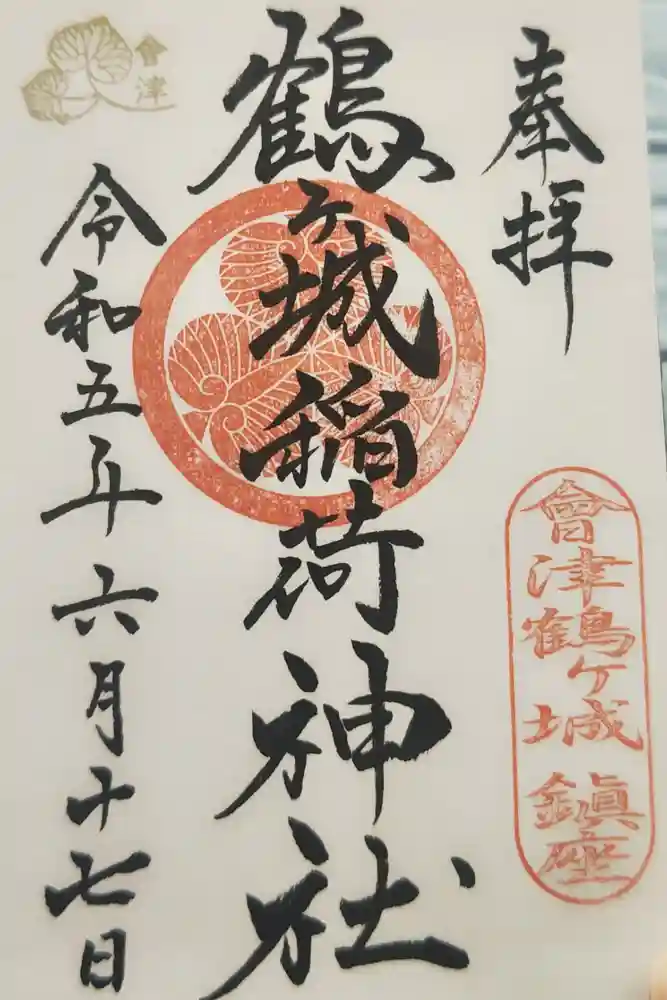 奉拝
會津鶴ヶ城鎮座
鶴ヶ城稲荷神社
令和五年六月十七日
會津